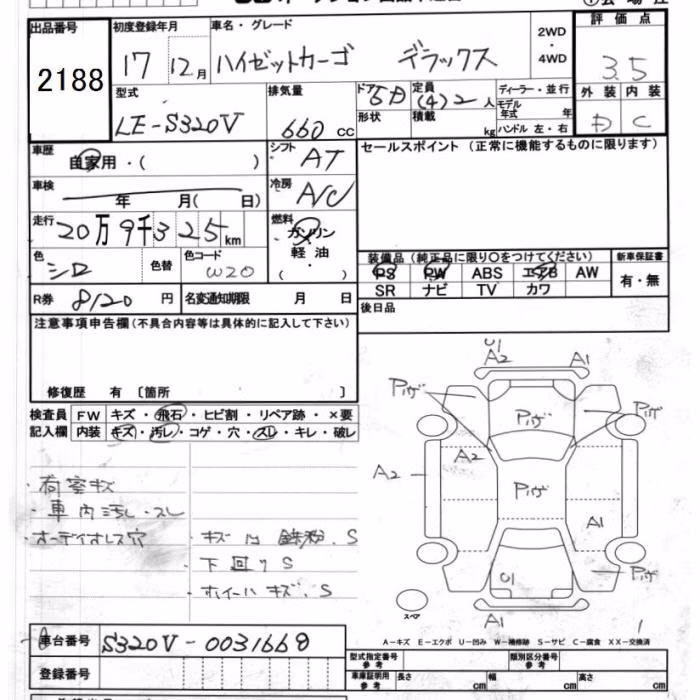 出品番号
2188
初度登録年月
17 12月
車名・グレード
ハイゼットカーゴ デラックス
2WD
・
4WD
評価点
3.5
外装 内装
D C
型式
LE-S320V
排気量
660 cc
ドア 5D
形状
定員
(4)2 人
積載
kg
ディーラー・並行
モデル年式 年
ハンドル 左・右
車歴
自家用・( )
シフト AT
セールスポイント (正常に機能するものに限ります)
車検
年 月( 日)
冷房 A/C
走行
20万9千325km
燃料
ガソリン
軽油
・( )
色 シロ
色替
色コード W20
装備品 (純正品に限り○をつけてください)
新車保証書
PS PW ABS エアB AW
SR ナビ TV カワ
有・無
R券 8120 円
名変通知期限 月 日
後日品
注意事項申告欄(不具合内容等は具体的に記入して下さい)
修復歴 有 〔箇所 〕
検査員記入欄
FW キズ・飛石・ヒビ割・リペア跡・×要
内装 キズ・汚レ・コゲ・穴・スレ・キレ・破レ
・荷室キズ
・車内汚レ・スレ
・オーディオレス穴
・キズ 鉄粉.S
下回りS
・ホイールキズ.S
U1
A2 A1
A2
A2
A1
U1
A1
スペア
A-キズ E-エクボ U-凹み W-補修跡 S-サビ C-腐食 XX-交換済
車台番号 S320V-0031668
登録番号
型式指定番号 参考
類別区分番号 参考
車庫証明用 参考
長さ cm 幅 cm 高さ cm